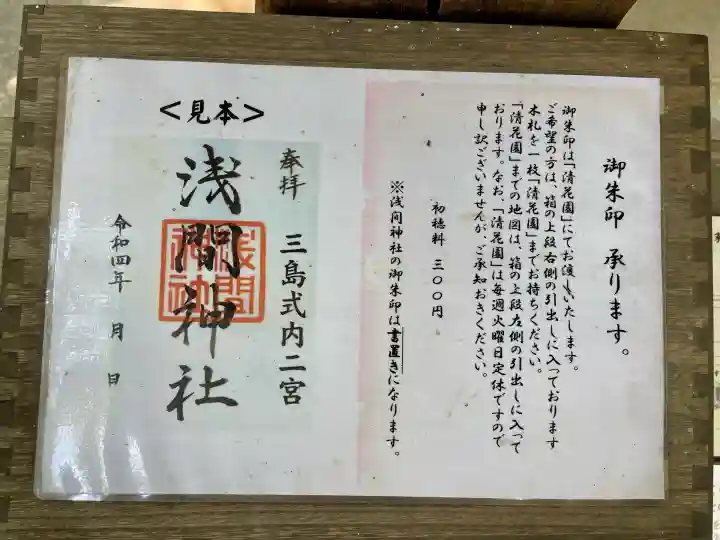 御朱印 承ります。
御朱印は「清花園」にてお渡しいたします。
ご希望の方は、箱の上段右側の引出しに入っております
木札を一枚「清花園」までお持ちください。
「清花園」までの地図は、箱の上段左側の引出しに入って
おります。なお、「清花園」は毎週火曜日定休ですので
申し訳ございませんが、ご承知おきください。
初穂料 三〇〇円
※浅间神社の御朱印は書置きになります。
＜見本＞
奉拝 三島式内二宮
浅間神社
浅間神社
令和四年 月 日